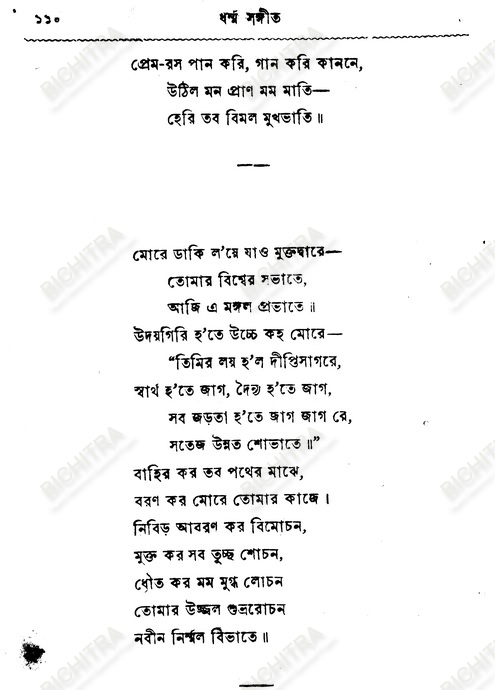 ১১০ ধর্ম্ম সঙ্গীত
প্রেম-রস পান করি, গান করি কাননে,
উঠিল মন প্রাণ মম মাতি—
হেরি তব বিমল মুখভাতি॥
মোরে ডাকি ল'য়ে যাও মুক্তদ্বারে—
তোমার বিশ্বের সভাতে,
আজি এ মঙ্গল প্রভাতে॥
উদয়গিরি হ'তে উচ্চে কহ মোরে—
“তিমির লয় হ'ল দীপ্তিসাগরে,
স্বার্থ হ'তে জাগ, দৈন্য হ'তে জাগ,
সব জড়তা হ'তে জাগ জাগ রে,
সতেজ উন্নত শোভাতে॥”
বাহির কর তব পথের মাঝে,
বরণ কর মোরে তোমার কাজে।
নিবিড় আবরণ কর বিমোচন,
মুক্ত কর সব তুচ্ছ শোচন,
ধৌত কর মম মুগ্ধ লোচন
তোমার উজ্জ্বল শুভ্ররোচন
নবীন নির্ম্মল বিভাতে॥
BICHITRA
BICHITRA
BICHITRA
BICHITRA
BICHITRA
BICHITRA
BICHITRA
BICHITRA
BICHITRA